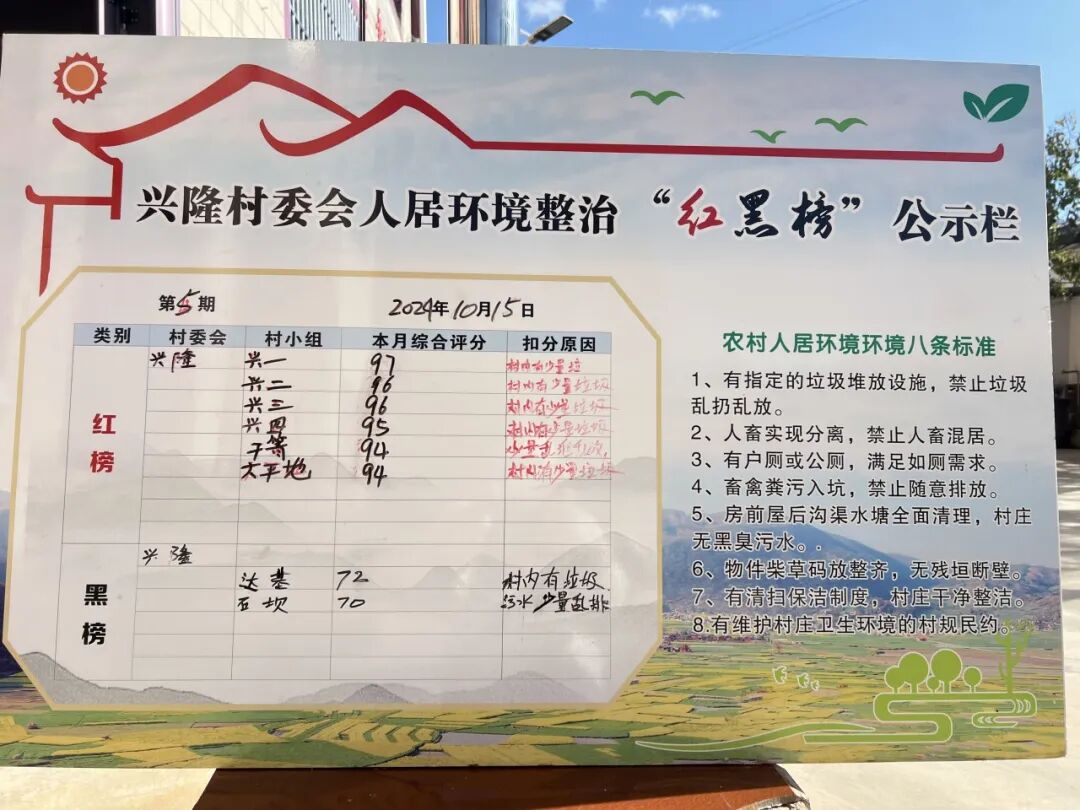 兴隆村委会人居环境整治“红黑榜”公示栏
第5期 2024年10月15日
类别 村委会 村小组 本月综合评分 扣分原因
红榜
兴隆 兴一 97 村内有少量垃
兴二 96 村内有少量垃圾
兴三 96 村内有少量垃圾
兴四 95 村内有少量垃圾
于等 94 少量乱
太平地 94 村内有少量垃圾
黑榜
兴隆
达基 72 村内有垃圾
石坝 70 污水少量乱排
农村人居环境环境八条标准
1、有指定的垃圾堆放设施，禁止垃圾
乱扔乱放。
2、人畜实现分离，禁止人畜混居。
3、有户厕或公厕，满足如厕需求。
4、畜禽粪污入坑，禁止随意排放。
5、房前屋后沟渠水塘全面清理，村庄
无黑臭污水。.
6、物件柴草码放整齐，无残垣断壁。
7、有清扫保洁制度，村庄干净整洁。
8.有维护村庄卫生环境的村规民约。